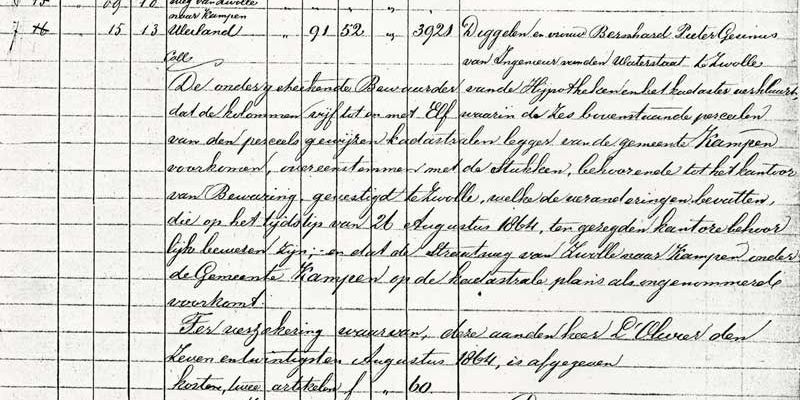 weg van Zwolle
naar Kampen
7 16 15 13 Weiland " 91 52 " 3921 Diggelen en vrouw Bernhard Pieter Geunus
van Ingenieur van den Waterstaat te Zwolle
Coll
De ondergeteekende Bewaarder van de Hypotheken en het kadaster verklaart
dat de kolommen vijf tot en met Elf waarin de Zes bovenstaande perceelen
van den perceels gewijzen kadastralen legger van de gemeente Kampen
voorkomen, overeenstemmen met de Stukken, behoorende tot het kantoor
van Bewaring, gevestigd te Zwolle, welke de veranderingen bevatten,
die op het tijdstip van 26 Augustus 1864, ten gezegden kantore behoor
lijk bewezen zijn; en dat de Straatweg van Zwolle naar Kampen onder
de Gemeente Kampen op de kadastrale plans als ongenommerd
voorkomt
Ter verzekering waarvan, deze aan den heer L'Olivier den
Zeven en twintigsten Augustus 1864, is afgegeven
kosten, twee artikelen f " 60.